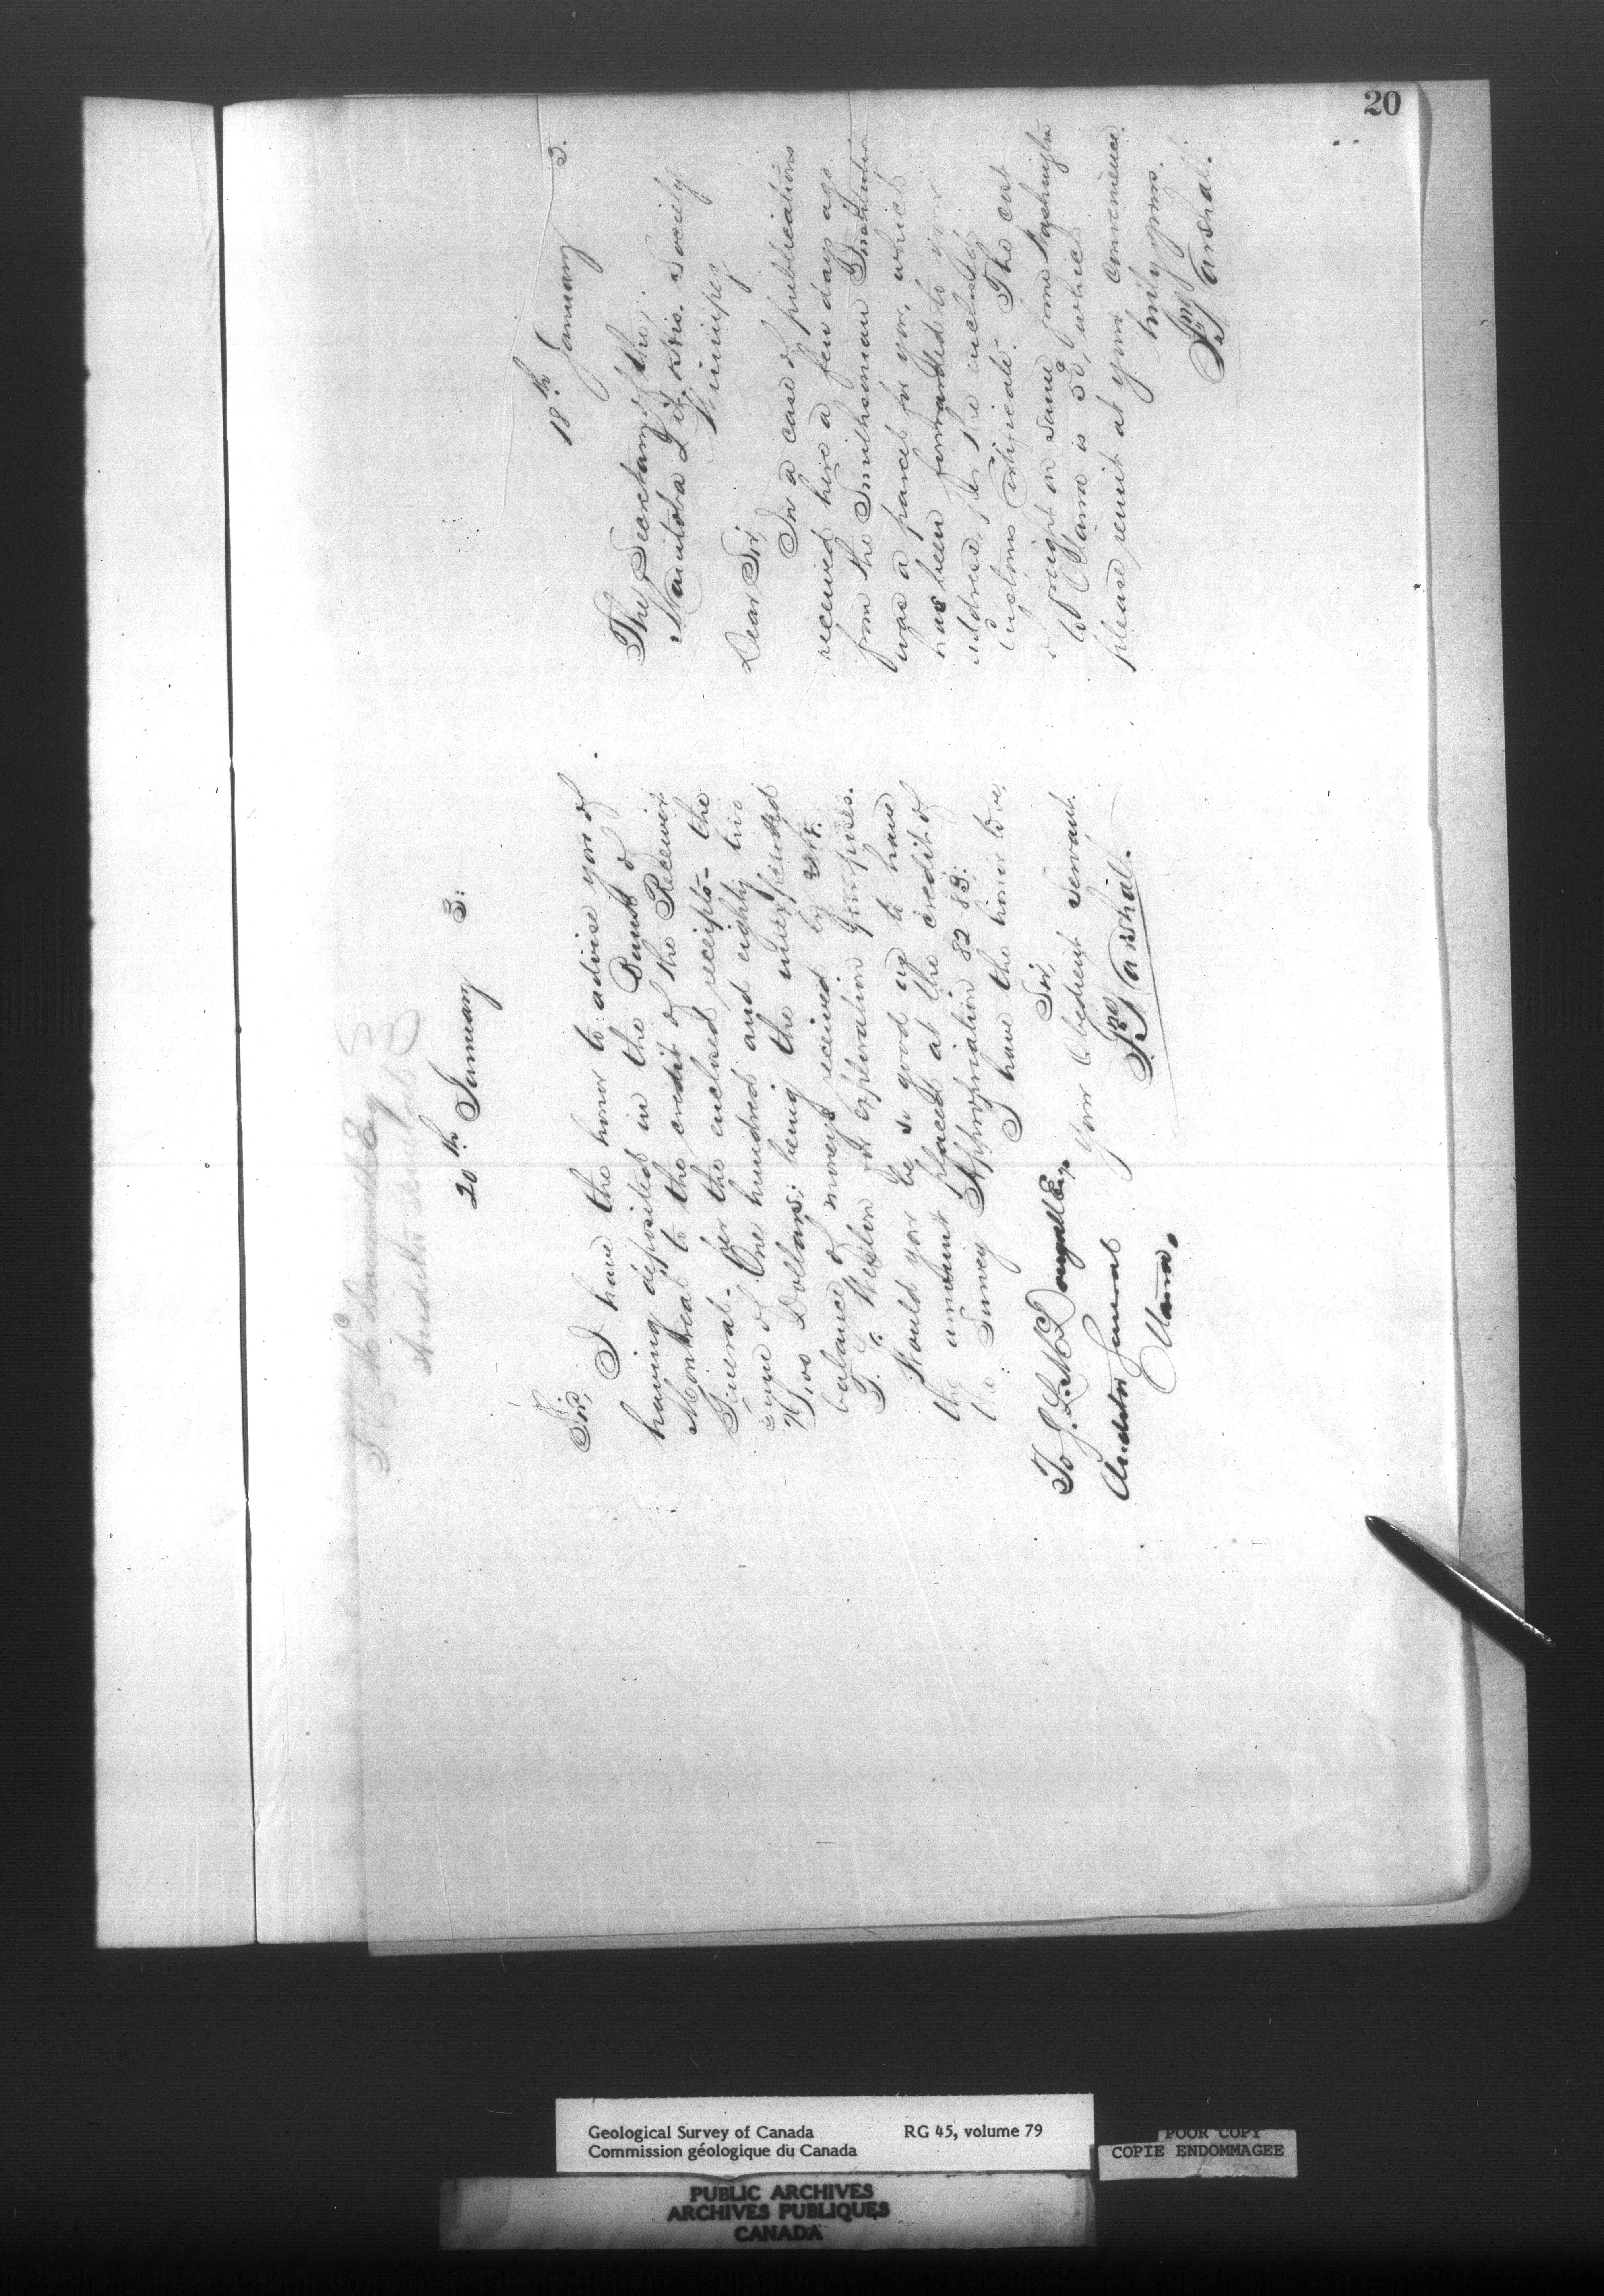 20
20th January 3.
Sir,
I have the honor to advise you of
having deposited in the Bank of
Montreal to the credit of the Receiver
General - per the enclosed receipts - the
sum of One hundred and eighty two
Dollars; being the unexpended
balance of moneys received by
T. C. Weston for exploration purposes.
Would you be so good as to have
the amount placed at the credit of
the Survey Appropriation 82 83:
I have the honor to be,
Sir,
Your Obedient Servant.
Jno Marshall.
To J. L. McDougall Esq,
Auditor General
Ottawa.
18th January 3.
The Secretary of the,
Manitoba Lit. & His. Society
Winnipeg
Dear Sir,
In a case of publications
received here a few days ago
from the Smithsonian Institution
was a parcel for you, which
has been forwarded to your
address, per the enclosed
Customs Certificate. The cost
of freight on same from Washington
to Ottawa is which
please remit at your convenience.
truly yours.
Jno Marshall.
Geological Survey of Canada RG 45, volume 79
Commission géologique du Canada
POOR COPY
COPIE ENDOMMAGEE
PUBLIC ARCHIVES
ARCHIVES PUBLIQUES
CANADA